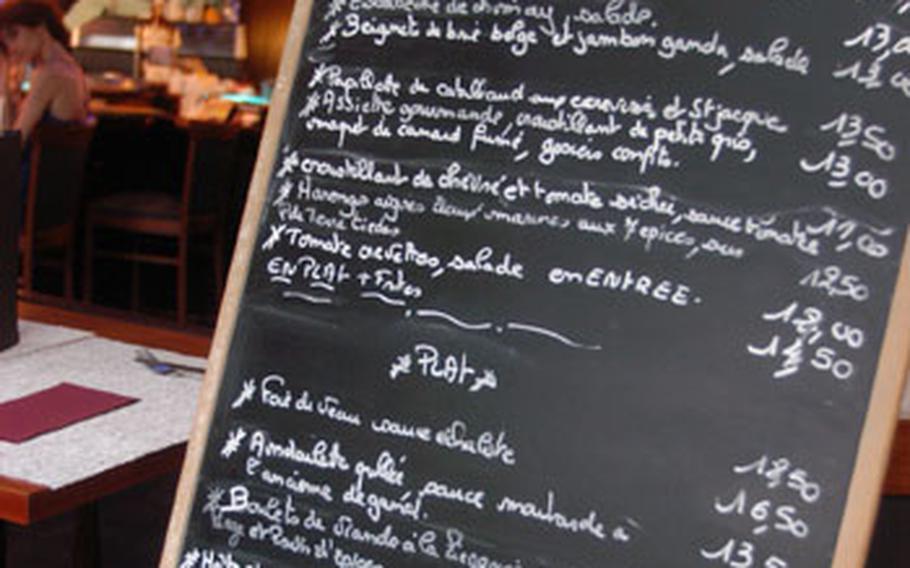 salade. 13,0
*Beignets de brie belge et jambon ganda, salade 13,00
*Papillote de cabillaud aux et St jacque 13,50
*Assiette gourmande, croustillant de petits gris, 13,00
magret de canard fumé, gesiers confits.
*croustillant de chèvre et tomate séchée, sauce tomate 11,00
*Harengs aigres doux marinés aux 7 epices, sur 12,50
Pdeterre tiedes
*Tomate crevettes, salade en ENTREE. 12,00
EN PLAT + Frites 50
*PLAT*
*Foie de Veau sauce echalote 18,50
*Andouillette grillée sauce moutarde à 16,50
l'ancienne de
*Boulets de Viande à la 13,5